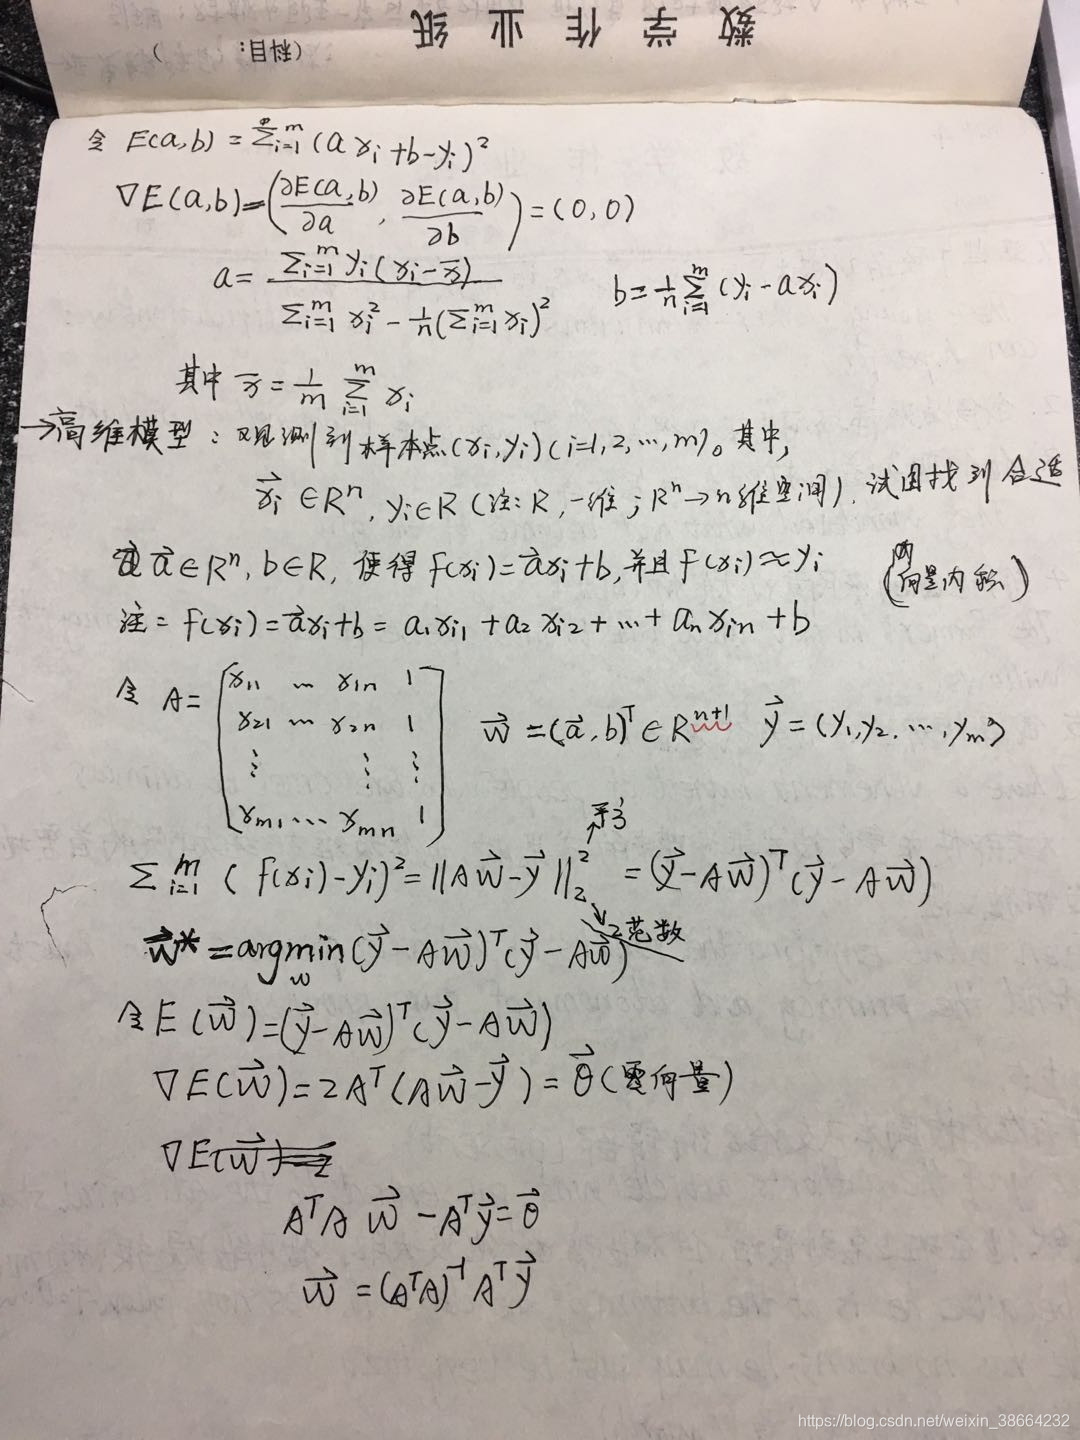 数学作业纸
(科目: )
令 E(a,b) = Σᵢ₌₁ᵐ (a xᵢ + b - yᵢ)²
∇E(a,b) = (∂E(a,b)/∂a , ∂E(a,b)/∂b) = (0,0)
a = Σᵢ₌₁ᵐ yᵢ(xᵢ - x̄) / (Σᵢ₌₁ᵐ xᵢ² - 1/n(Σᵢ₌₁ᵐ xᵢ)²)    b = 1/n Σᵢ₌₁ᵐ (yᵢ - axᵢ)
其中 x̄ = 1/m Σᵢ₌₁ᵐ xᵢ
→高维模型：观测到样本点(xᵢ,yᵢ)(i=1,2,…,m)。其中,
x⃗ᵢ ∈ Rⁿ, yᵢ∈R (注: R, 一维; Rⁿ→n维空间), 试图找到合适
a⃗ ∈ Rⁿ, b∈R, 使得 f(xᵢ)=a⃗xᵢ+b, 并且 f(xᵢ)≈yᵢ (向量内积)
注: f(xᵢ) = a⃗xᵢ+b = a₁xᵢ₁ + a₂xᵢ₂ + … + aₙxᵢₙ + b
令 A = [x₁₁ … x₁ₙ 1
x₂₁ … x₂ₙ 1
⋮ ⋮ ⋮
xₘ₁ … xₘₙ 1]
w⃗ = (a⃗, b)ᵀ ∈ Rⁿ⁺¹ y⃗ = (y₁, y₂, …, yₘ)
→平方
Σᵢ₌₁ᵐ (f(xᵢ) - yᵢ)² = ||Aw⃗ - y⃗||₂² = (y⃗ - Aw⃗)ᵀ(y⃗ - Aw⃗)
→2范数
w⃗* = argmin_w (y⃗ - Aw⃗)ᵀ(y⃗ - Aw⃗)
令 E(w⃗) = (y⃗ - Aw⃗)ᵀ(y⃗ - Aw⃗)
∇E(w⃗) = 2Aᵀ(Aw⃗ - y⃗) = 0⃗ (零向量)
∇E(w⃗) = 2
AᵀA w⃗ - Aᵀy⃗ = 0⃗
w⃗ = (AᵀA)⁻¹Aᵀy⃗
https://blog.csdn.net/weixin_38664232